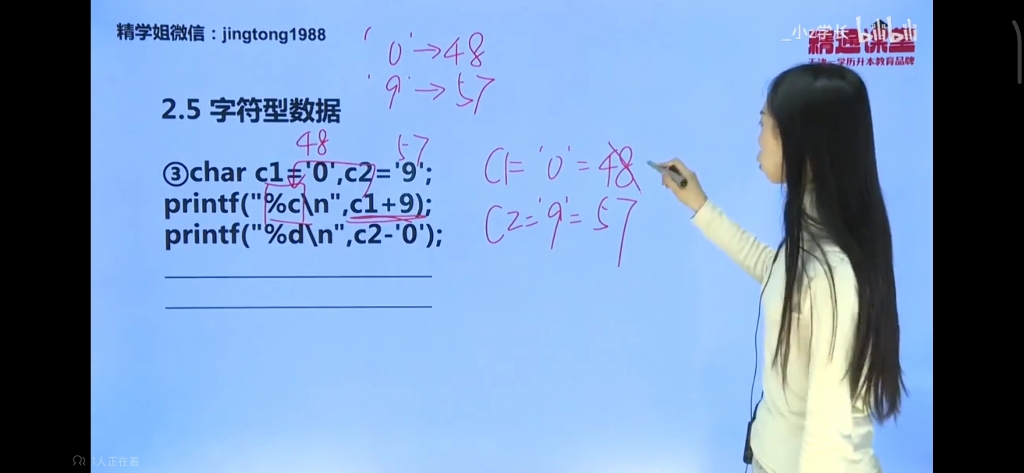 精学姐微信：jingtong1988
_小z学长 bilibili
精通课堂
天津一学历升本教育品牌
'0'→48
'9'→57
2.5 字符型数据
48 57
③char c1='0',c2='9';
printf("%c\n",c1+9);
printf("%d\n",c2-'0');
C1='0'=48
C2='9'=57
人正在看